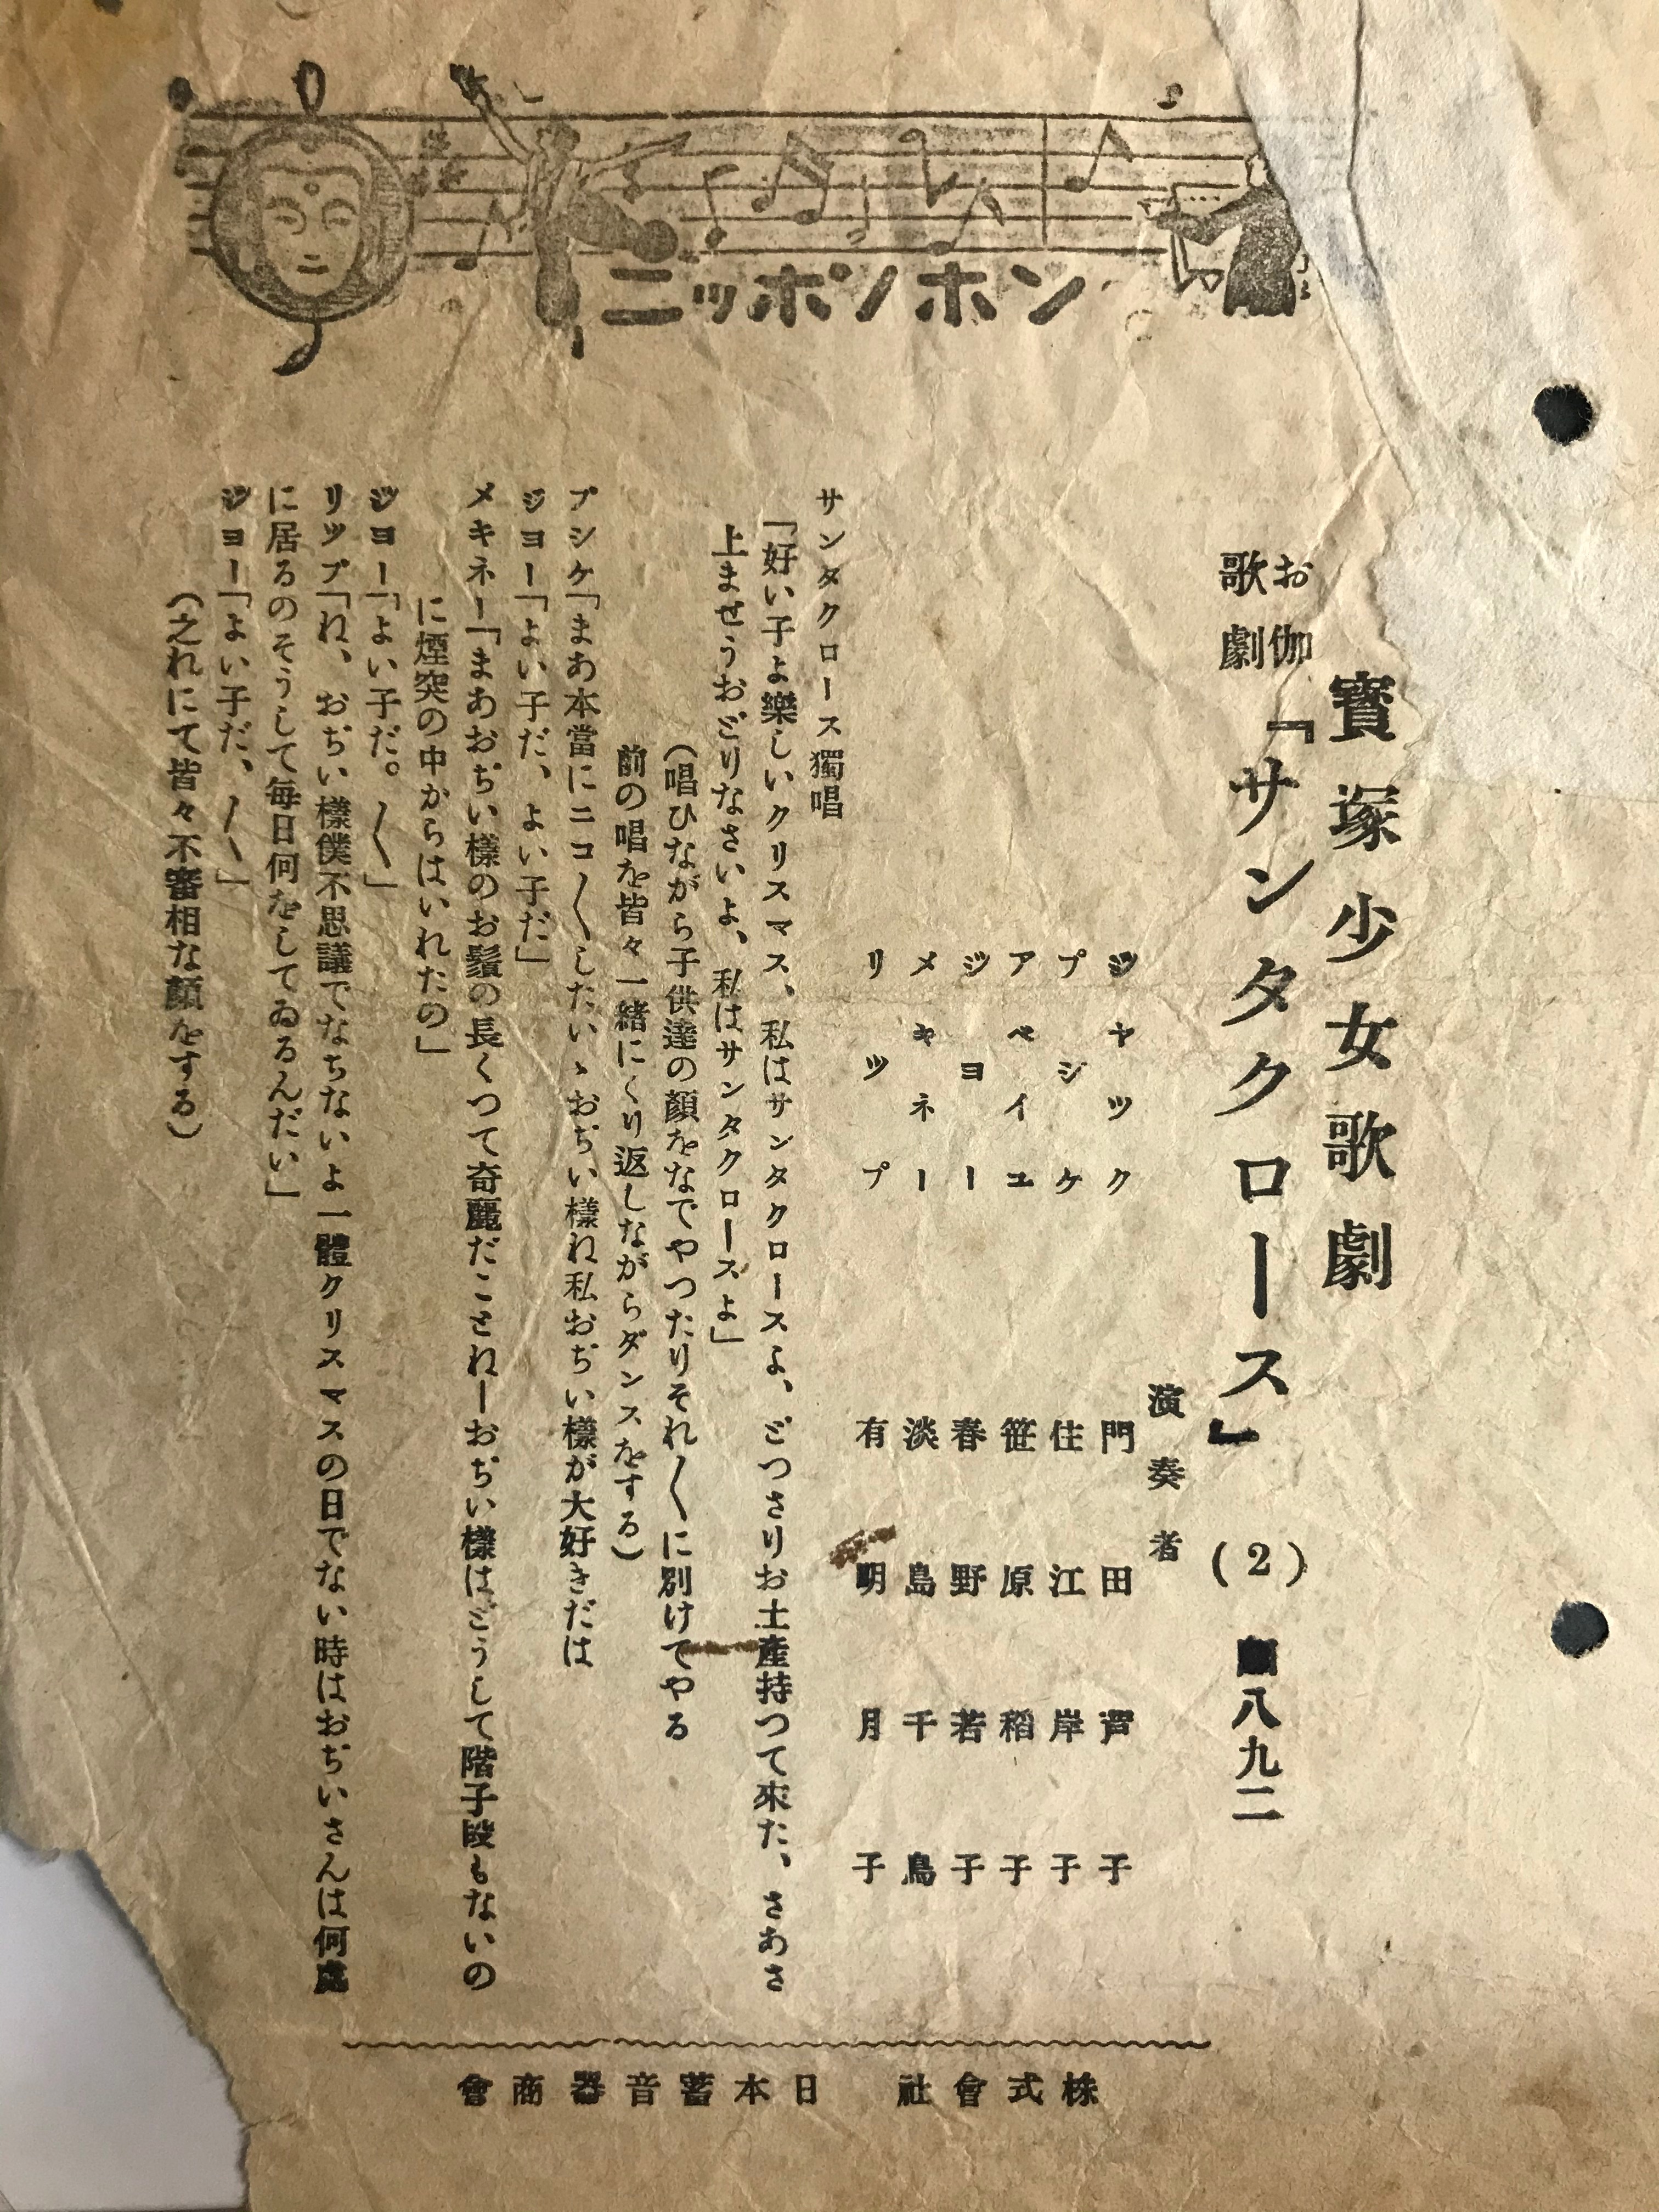 ニッポンノホン
寳塚少女歌劇
お伽歌劇『サンタクロース』(2) 八九二
演奏者
ジヤツク 門田芦子
プジケ 住江岸子
アベイユ 笹原稻子
ジヨー 春野若子
メキネー 淡島千鳥
リツプ 有明月子
サンタクロース獨唱
「好い子よ樂しいクリスマス、私はサンタクロースよ、どつさりお土産持つて來た、さあさ
上ませうおどりなさいよ、私はサンタクロースよ」
(唱ひながら子供達の顏をなでやつたりそれ〳〵に別けてやる
前の唱を皆々一緒にくり返しながらダンスをする)
プシケ「まあ本當にニコ〳〵したいゝおぢい樣ね私おぢい樣が大好きだは
ジヨー「よい子だ、よい子だ」
メキネー「まあおぢい樣のお鬚の長くつて奇麗だことねーおぢい樣はどうして階子段もないの
に煙突の中からはいれたの」
ジヨー「よい子だ。〳〵」
リツプ「ね、おぢい樣僕不思議でなちないよ一體クリスマスの日でない時はおぢいさんは何處
に居るのそうして毎日何をしてゐるんだい」
ジヨー「よい子だ、〳〵」
(之れにて皆々不審相な顏をする)
株式會社 日本蓄音器商會